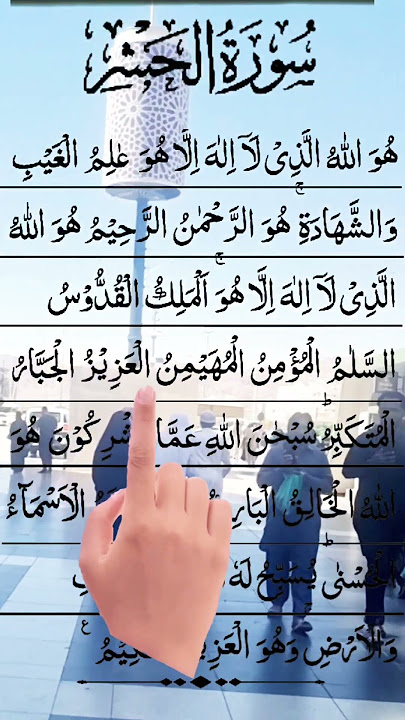 سُورَةُ الْحَشْرِ
هُوَ اللهُ الَّذِیْ لَآ اِلٰهَ اِلَّا هُوَ عٰلِمُ الْغَیْبِ
وَالشَّهَادَةِۚ هُوَ الرَّحْمٰنُ الرَّحِیْمُ هُوَ اللهُ
الَّذِیْ لَآ اِلٰهَ اِلَّا هُوَۚ اَلْمَلِكُ الْقُدُّوْسُ
السَّلٰمُ الْمُؤْمِنُ الْمُهَیْمِنُ الْعَزِیْزُ الْجَبَّارُ
الْمُتَكَبِّرُؕ سُبْحٰنَ اللهِ عَمَّا هُوَ
اللهُ الْخَالِقُ الْاَسْمَآءُ
الْحُسْنٰیؕ یُسَبِّحُ
وَالْاَرْضِۚ وَهُوَ